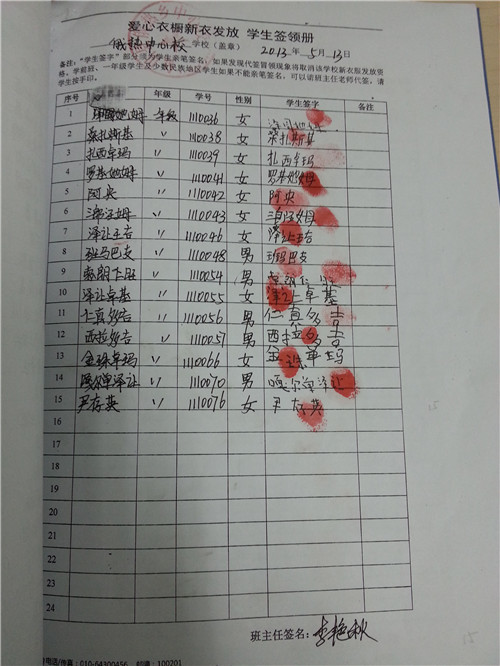 爱心衣橱新衣发放 学生签领册
俄热中心校 学校（盖章） 2013年5月13日
备注：“学生签字”部分须为学生亲笔签名；如果发现代签冒领现象将取消该学校新衣服发放资
格，学前班、一年级学生及少数民族地区学生如果不能亲笔签名，可以请班主任老师代签，请
学生按手印。
序号 年级 学号 性别 学生签字 备注
1 年级 1110036 女
2 桑扎斯基 〃 1110038 女 桑扎斯基
3 扎西卓玛 〃 1110039 女 扎西卓玛
4 罗基她姆 〃 1110041 女 罗基她姆
5 阿央 〃 1110042 女 阿央
6 〃 1110043 女
7 泽让王吉 〃 1110046 女 泽让王吉
8 班马巴支 〃 1110048 男 班玛巴支
9 〃 1110054 男
10 泽让卓基 〃 1110055 女 泽让卓基
11 仁真多吉 〃 1110056 男 仁真多吉
12 西拉多吉 〃 1110057 男 西拉多吉
13 金珠卓玛 〃 1110066 女 金珠卓玛
14 嘎尔单泽让 〃 1110070 男 嘎尔单泽让
15 尹存英 〃 1110076 女 尹存英
16
17
18
19
20
21
22
23
24
班主任签名：李艳秋
电话/传真：010-64300456 邮编：100201